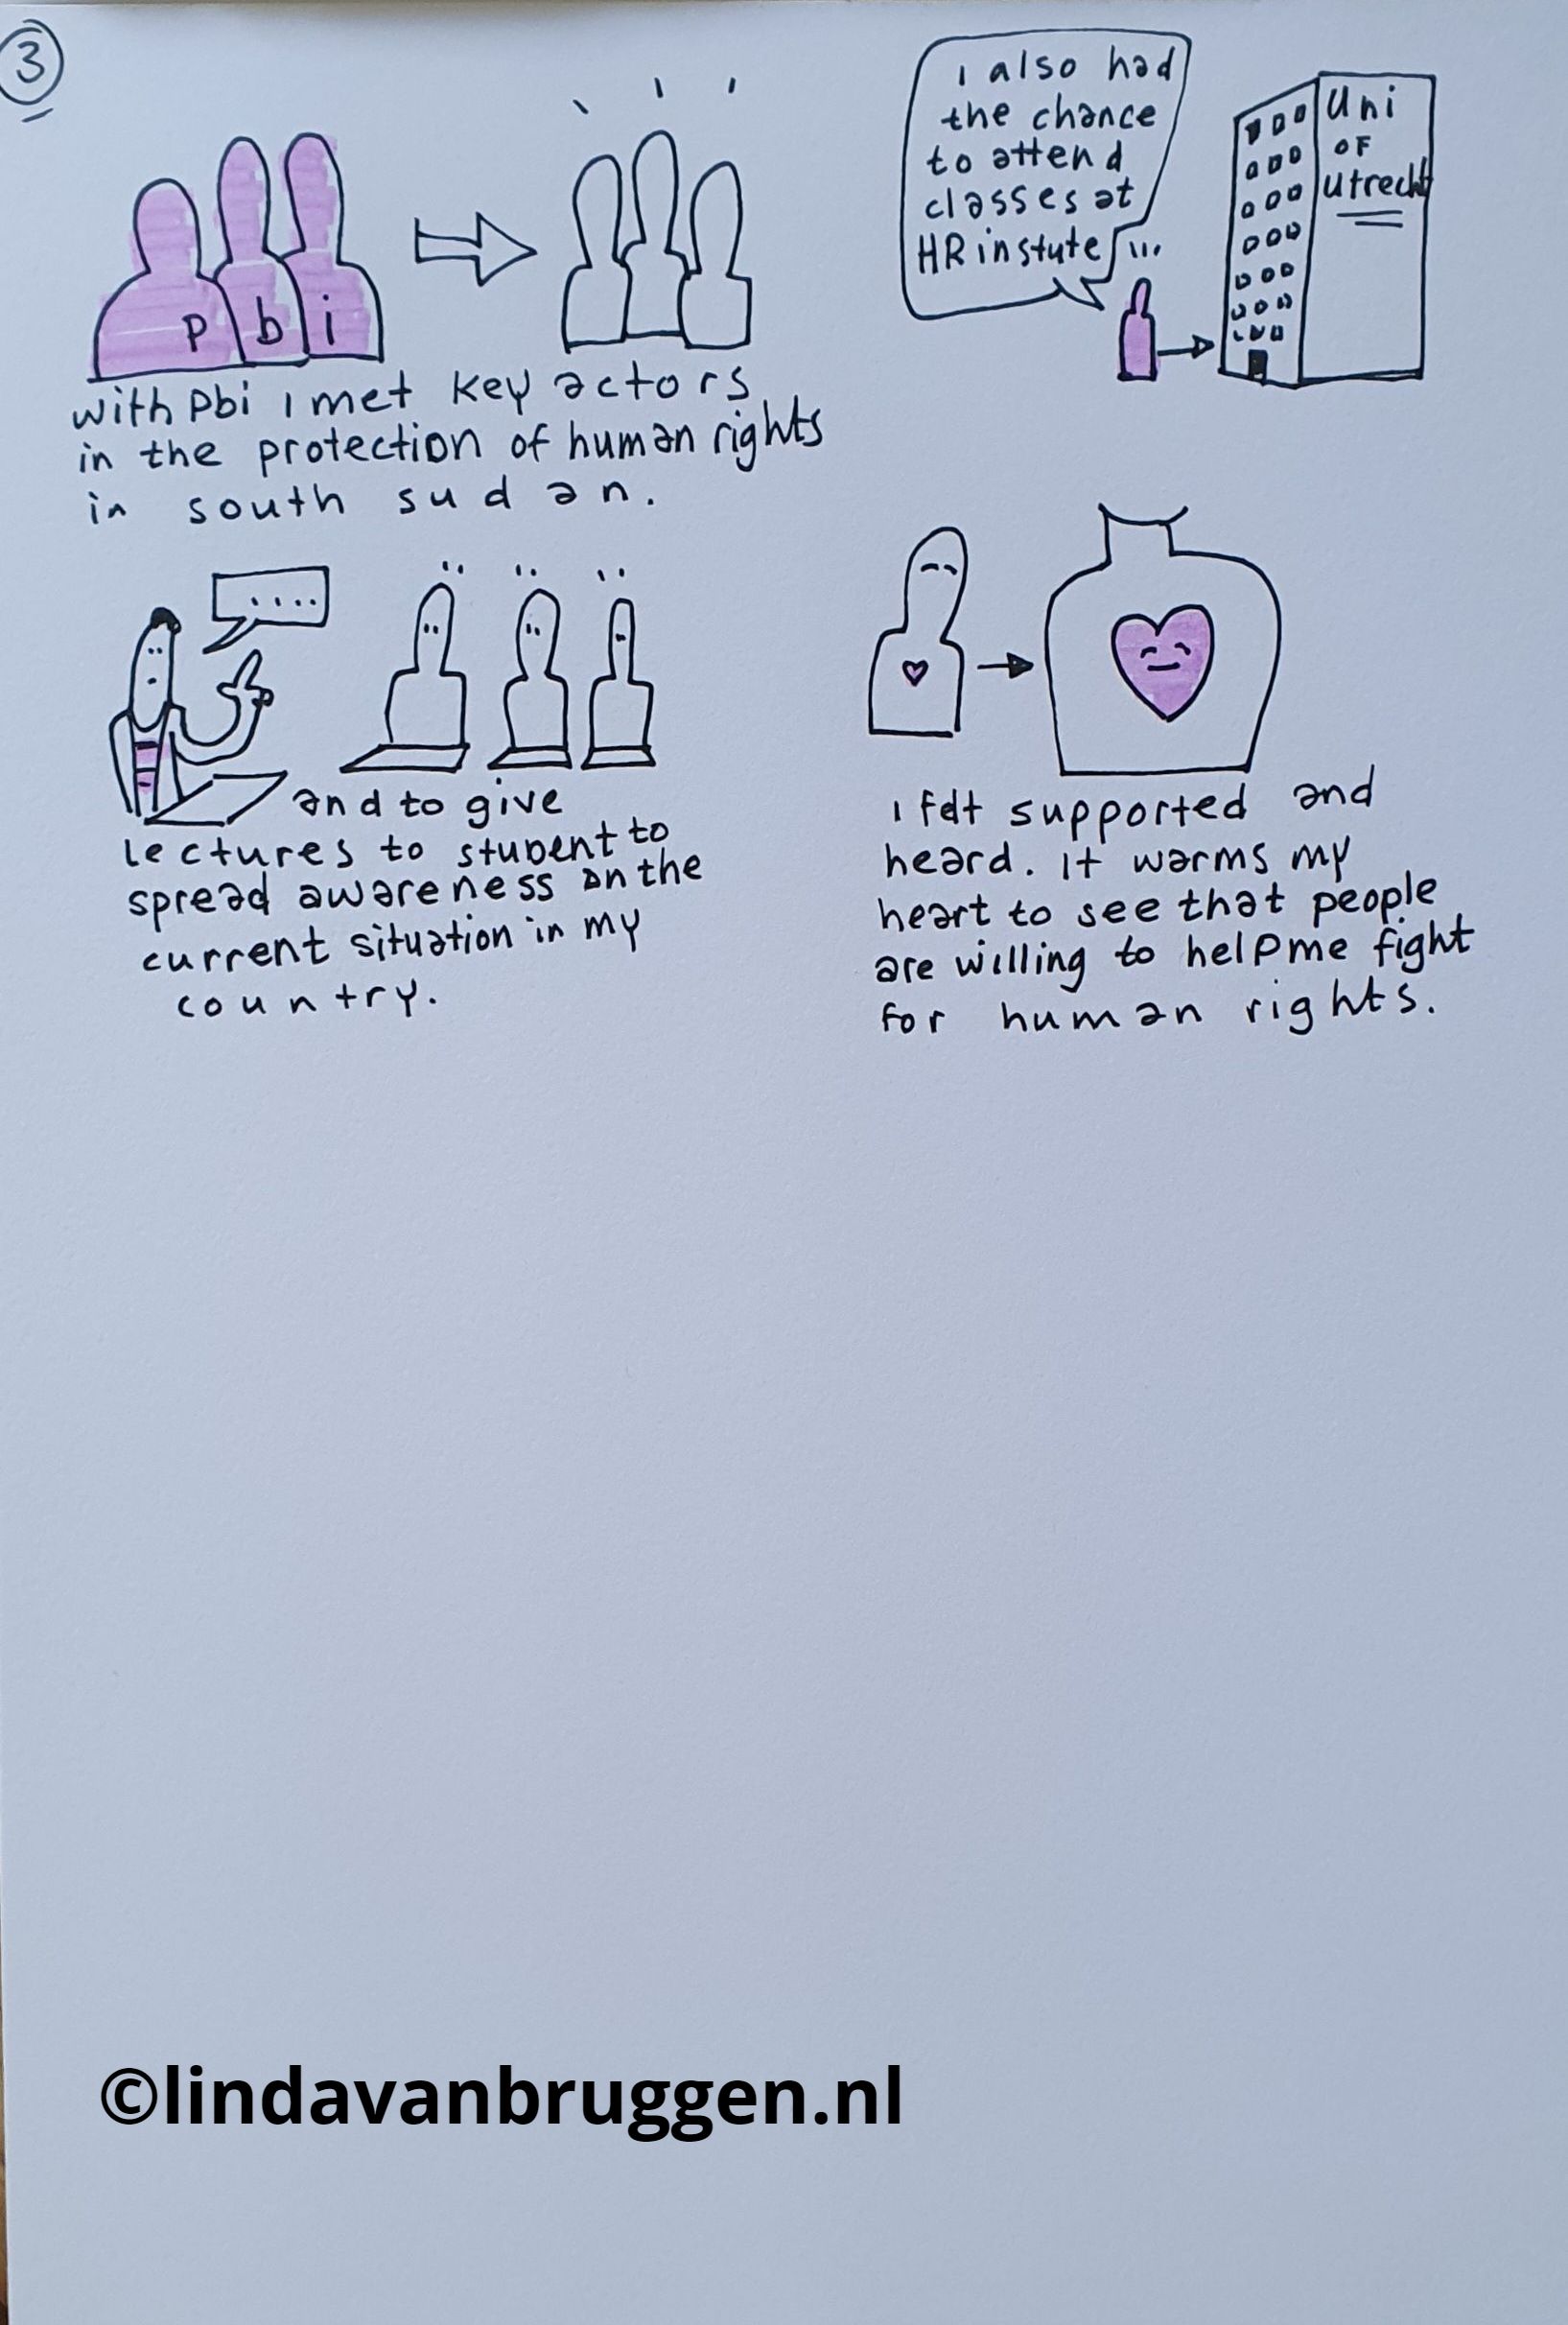 3
p b i
with pbi i met key actors
in the protection of human rights
in south sudan.
i also had
the chance
to attend
classes at
HR instute
...
Uni
OF
Utrecht
....
and to give
lectures to student to
spread awareness on the
current situation in my
country.
i felt supported and
heard. it warms my
heart to see that people
are willing to help me fight
for human rights.
©lindavanbruggen.nl